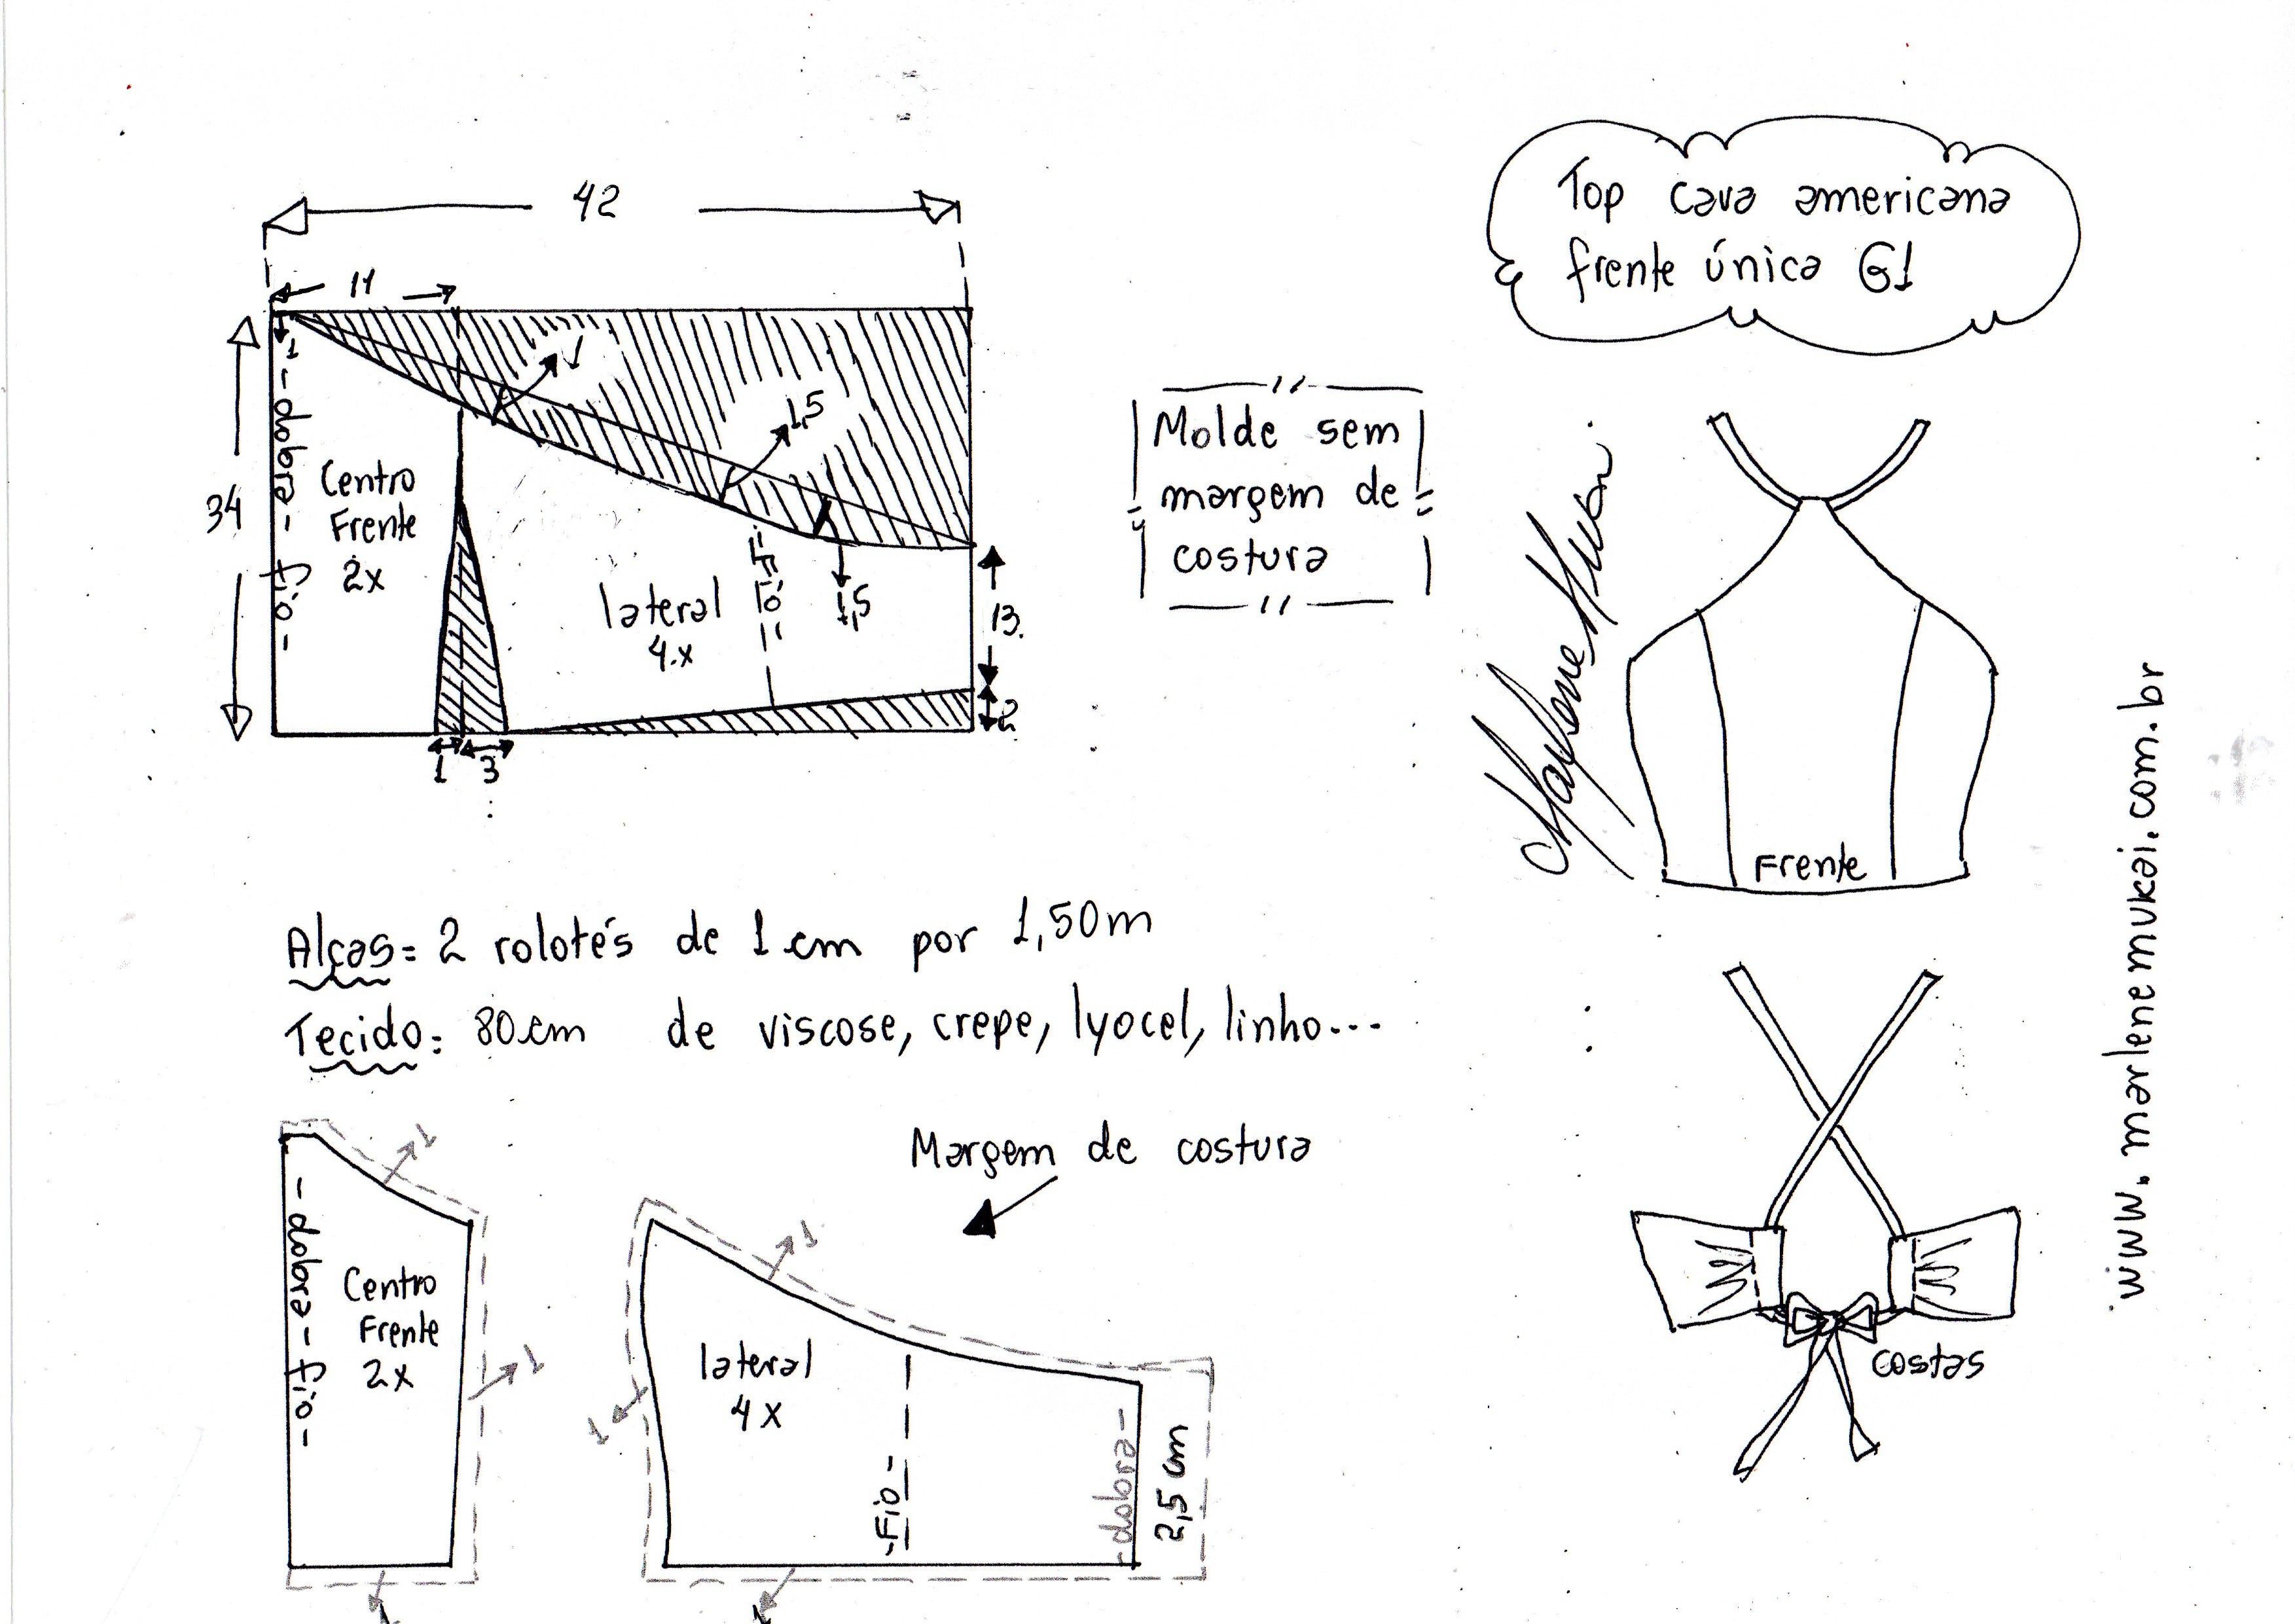 Top cava americana
frente única G1
42
11
1
1
1,5
- dobra - fio -
34
Centro
Frente
2x
lateral
4x
fio
1,5
13
2
1
3
Molde sem
margem de
costura
Frente
www.marlenemukai.com.br
Alças = 2 rolotés de 1 cm por 1,50m
Tecido: 80cm de viscose, crepe, lyocel, linho...
Margem de costura
1
- dobra - fio -
Centro
Frente
2x
1
1
lateral
4x
1
- Fio -
- dobra -
2,5 cm
costas